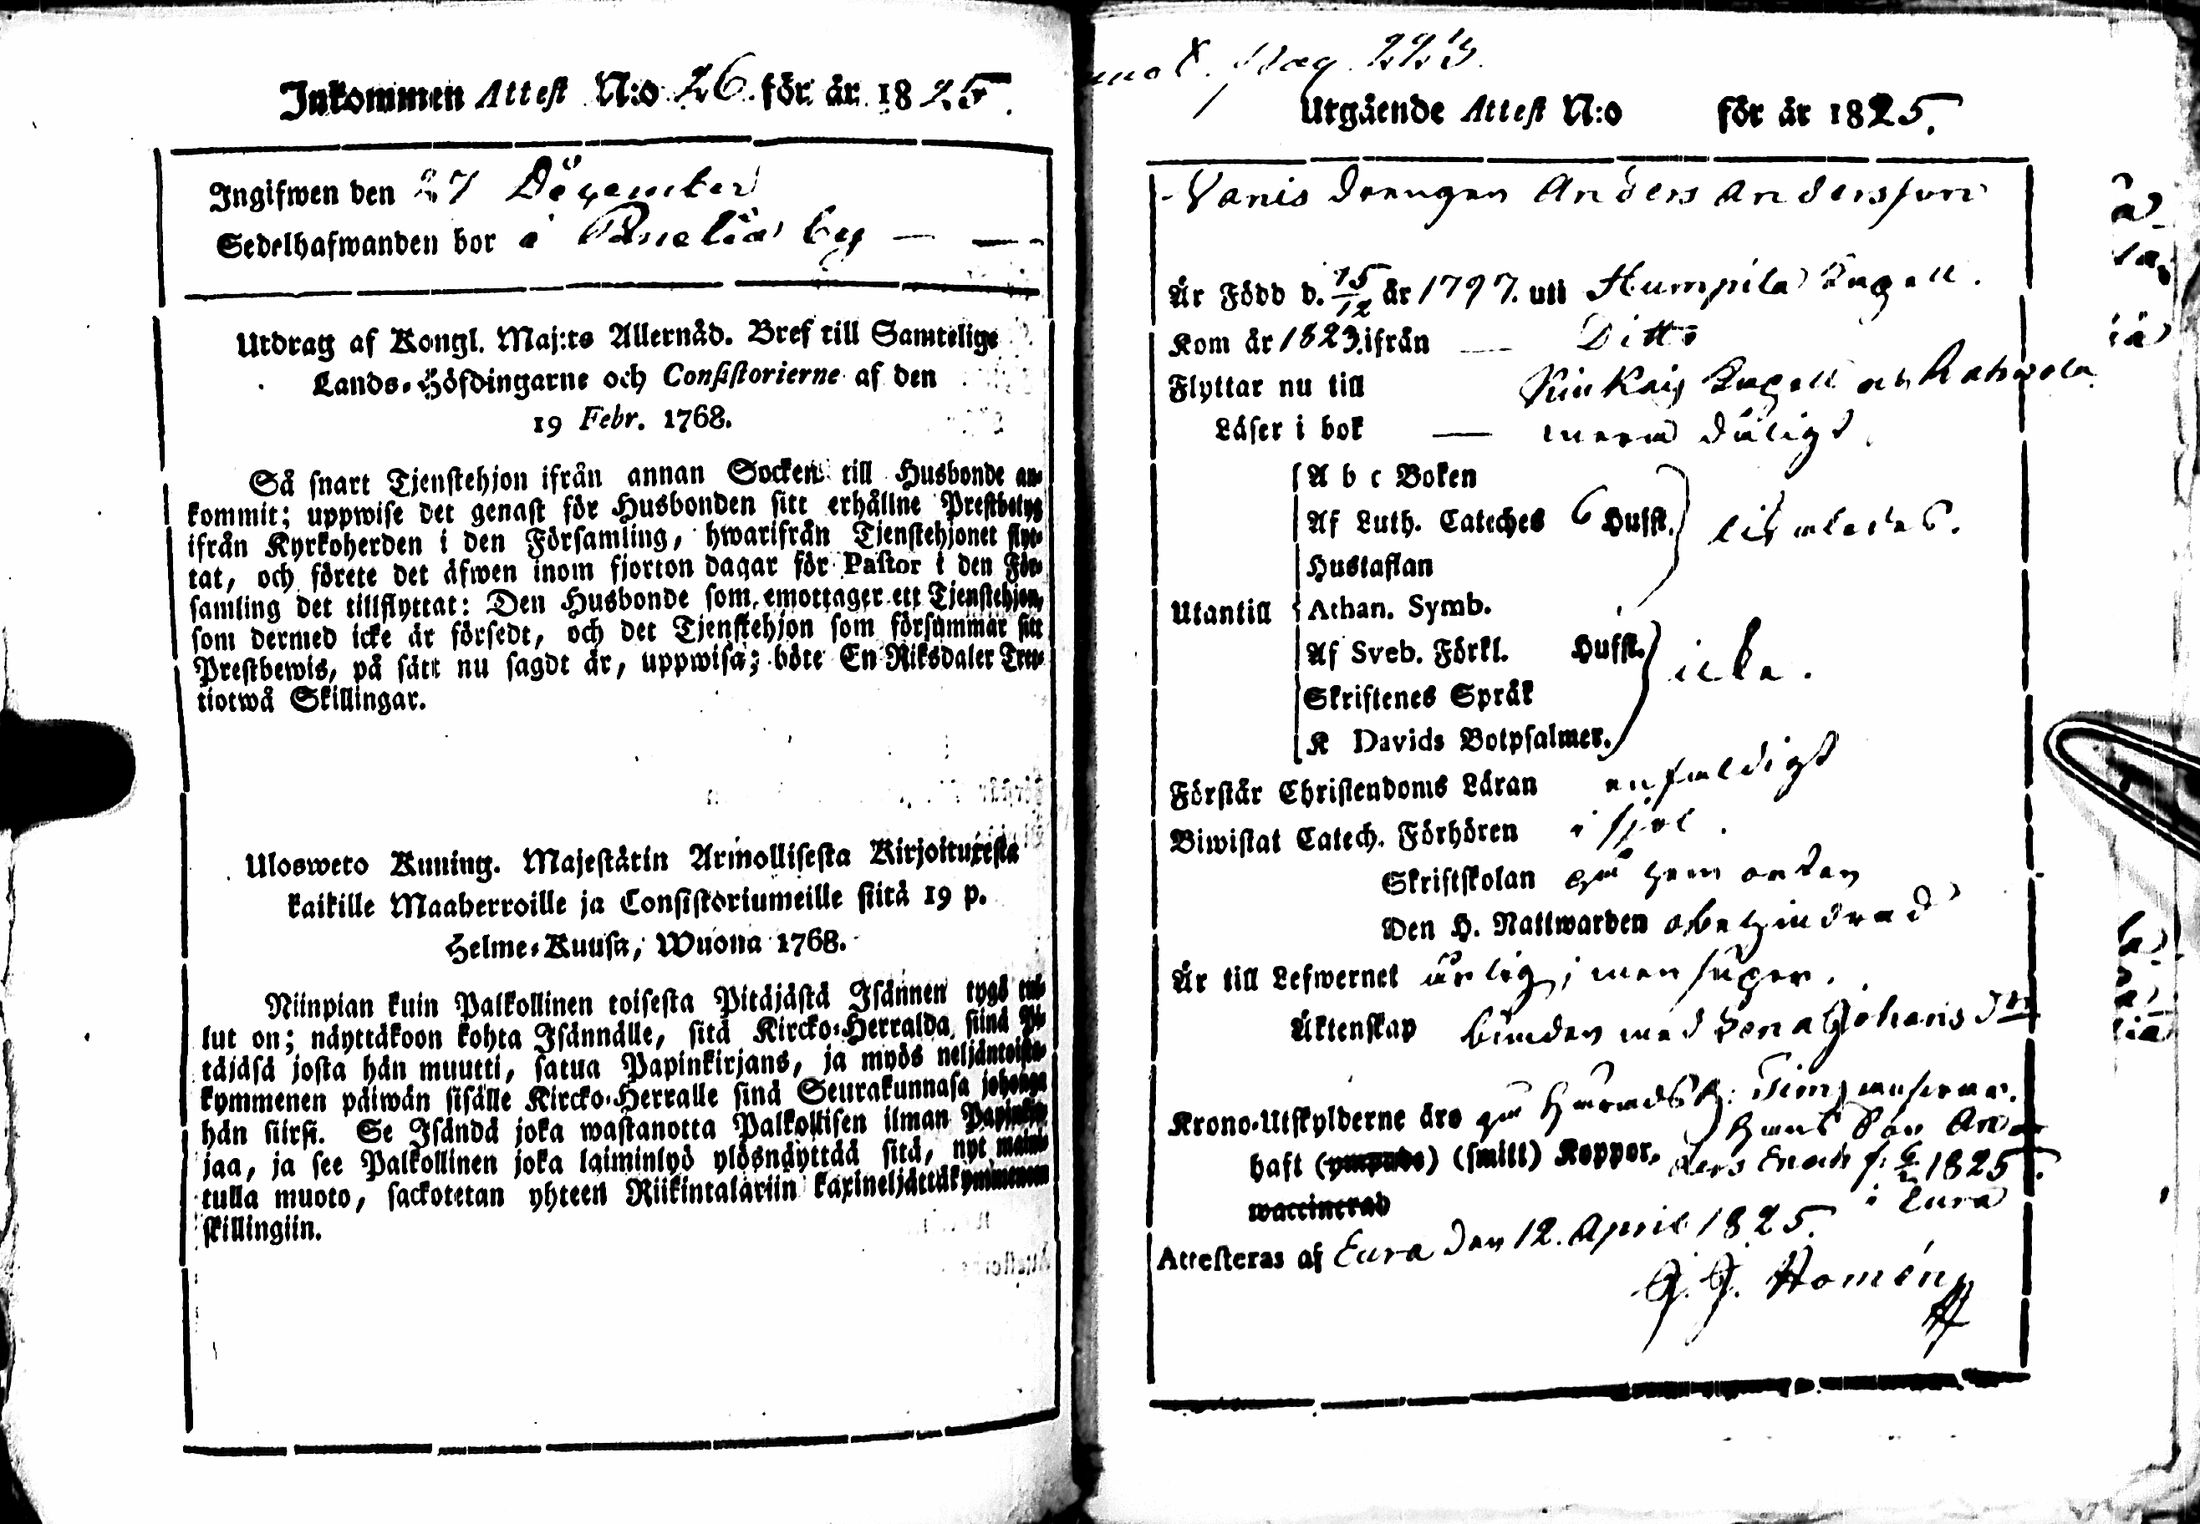 Inkommen Attest N:o 26. för år 1825.
Ingifwen den 27 December
Sedelhafwanden bor i Panelia by —
Utdrag af Kongl. Maj:ts Allernåd. Bref till Samtelige
Lands-Höfdingarne och Consistorierne af den
19 Febr. 1768.
Så snart Tjenstehjon ifrån annan Socken till Husbonde an-
kommit; uppwise det genast för Husbonden sitt erhållne Prestbetyg
ifrån Kyrkoherden i den Församling, hwarifrån Tjenstehjonet flyt-
tat, och förete det äfwen inom fjorton dagar för Pastor i den För-
samling det tillflyttat: Den Husbonde som emottager ett Tjenstehjon,
som dermed icke är försedt, och det Tjenstehjon som försummar sitt
Prestbewis, på sätt nu sagdt är, uppwisa; böte En Riksdaler Tret-
tiotwå Skillingar.
Ulosweto Kuning. Majestätin Armollisesta Kirjoituxesta
kaikille Maaherroille ja Consistoriumeille siitä 19 p.
Helme-Kuusa, Wuona 1768.
Niinpian kuin Palkollinen toisesta Pitäjästä Isännen tygö tul-
lut on; näyttäkoon kohta Isännälle, sitä Kircko-Herralda siinä Pi-
täjäsä josta hän muutti, satua Papinkirjans, ja myös neljäntoista-
kymmenen päiwän sisälle Kircko-Herralle sinä Seurakunnasa johonga
hän siirsi. Se Isändä joka wastanotta Palkollisen ilman Papinkir-
jaa, ja see Palkollinen joka laiminlyö ylösnäyttää sitä, nyt mainit-
tulla muoto, sackotetan yhteen Riikintalariin kaxineljättäkymmenem
skillingiin.
Pag. 223.
Utgående Attest N:o för år 1825.
Drengen Anders Andersson
Är Född d. 15/12 år 1797. uti Humpila Capell.
Kom år 1823. ifrån — Ditto
Flyttar nu till Kiukais Capell
Läser i bok —
A b c Boken
Af Luth. Cateches 6 Hufst.
Hustaflan
Utantill Athan. Symb.
Af Sveb. Förkl. Hufst.
icke.
Skriftenes Språk
K Davids Botpsalmer.
Förstår Christendoms Läran enfaldigt
Biwistat Catech. Förhören
Skriftskolan
Den H. Nattwarden obehindrad
Är till Lefwernet ärlig, men super.
Äktenskap bunden med Lena Johans dr
Krono-Utskylderne äro
hans Son An-
haft (ympade) (smitt) Koppor, ders Enoch f. 1825
waccinerad i Eura
Attesteras af Eura den 12. April 1825.
G. G. Homén